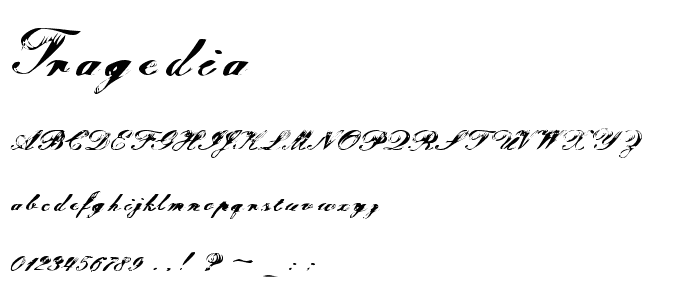 Tragedia
ABCDEFGHIJKLMNOPQRSTUVWXYZ
abcdefghijklmnopqrstuvwxyz
0123456789 ., ! ? ~ _ : ;